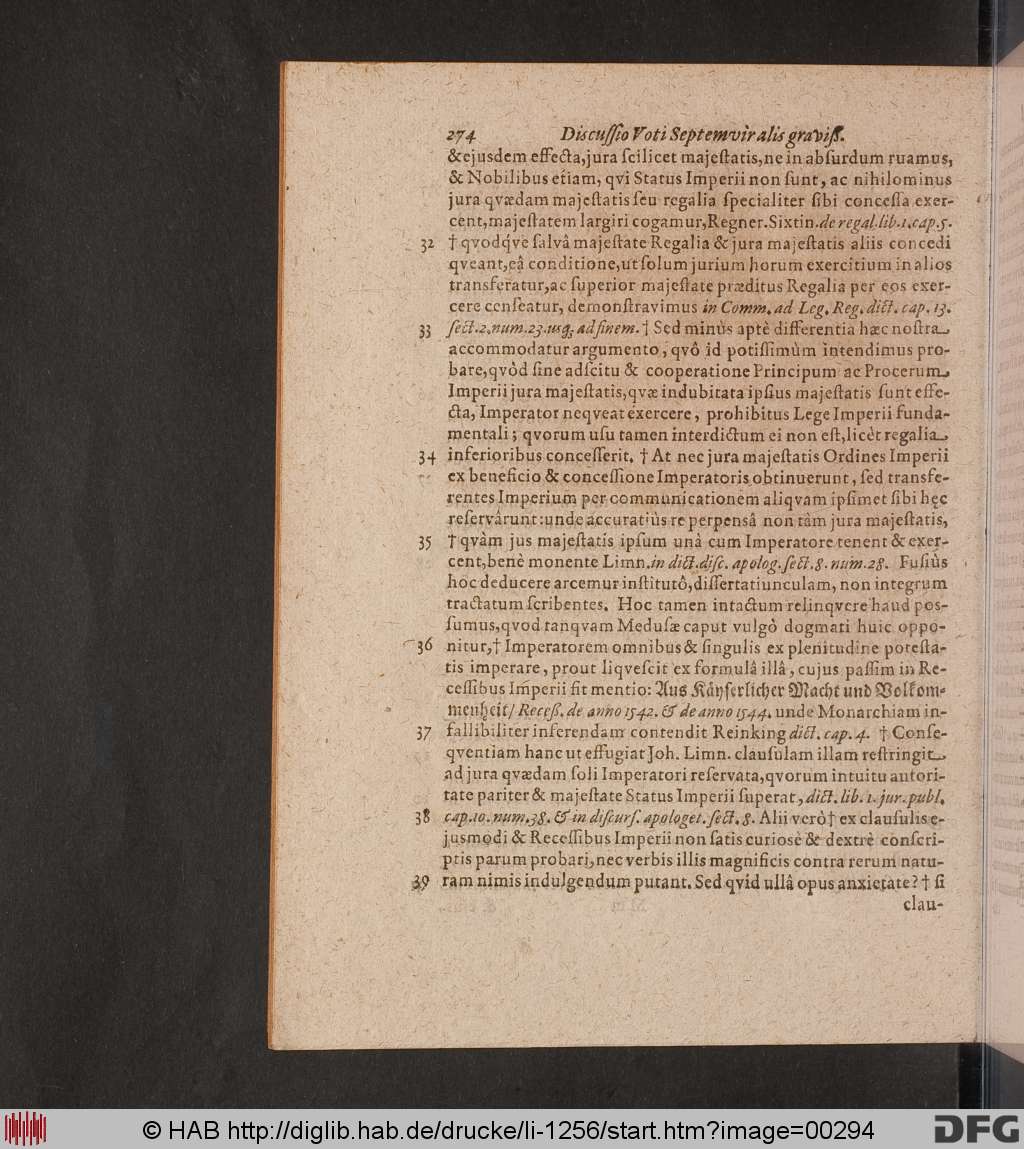 274 Discuſſio Voti Septemviralis graviſſ.
& ejusdem effecta, jura ſcilicet majeſtatis, ne in abſurdum ruamus,
& Nobilibus etiam, qvi Status Imperii non ſunt, ac nihilominus
jura qvædam majeſtatis ſeu regalia ſpecialiter ſibi conceſſa exer-
cent, majeſtatem largiri cogamur, Regner. Sixtin. de regal. lib. 1. cap. 5.
32 † qvodq́ve ſalvâ majeſtate Regalia & jura majeſtatis aliis concedi
qveant, eâ conditione, ut ſolum jurium horum exercitium in alios
transferatur, ac ſuperior majeſtate præditus Regalia per eos exer-
cere cenſeatur, demonſtravimus in Comm. ad Leg. Reg. dict. cap. 13.
33 ſect. 2. num. 23. usq; ad finem. † Sed minùs aptè differentia hæc noſtra
accommodatur argumento, qvô id potiſſimùm intendimus pro-
bare, qvòd ſine adſcitu & cooperatione Principum ac Procerum
Imperii jura majeſtatis, qvæ indubitata ipſius majeſtatis ſunt effe-
cta, Imperator neqveat exercere, prohibitus Lege Imperii funda-
mentali; qvorum uſu tamen interdictum ei non eſt, licèt regalia
34 inferioribus conceſſerit. † At nec jura majeſtatis Ordines Imperii
ex beneficio & conceſſione Imperatoris obtinuerunt, ſed transfe-
rentes Imperium per communicationem aliqvam ipſimet ſibi hęc
reſervârunt: unde accuratiùs re perpensâ non tàm jura majeſtatis,
35 † qvàm jus majeſtatis ipſum unà cum Imperatore tenent & exer-
cent, benè monente Limn. in dict. diſc. apolog. ſect. 8. num. 28. Fuſiùs
hoc deducere arcemur inſtitutô, diſſertatiunculam, non integrum
tractatum ſcribentes. Hoc tamen intactum relinqvere haud pos-
ſumus, qvod tanqvam Meduſæ caput vulgò dogmati huic oppo-
36 nitur, † Imperatorem omnibus & ſingulis ex plenitudine poteſta-
tis imperare, prout liqveſcit ex formulâ illâ, cujus paſſim in Re-
ceſſibus Imperii fit mentio: Aus Käyſerlicher Macht und Volkom-
menheit/ Receſſ. de anno 1542. & de anno 1544. unde Monarchiam in-
37 fallibiliter inferendam contendit Reinking dict. cap. 4. † Conſe-
qventiam hanc ut effugiat Joh. Limn. clauſulam illam reſtringit
ad jura qvædam ſoli Imperatori reſervata, qvorum intuitu autori-
tate pariter & majeſtate Status Imperii ſuperat, dict. lib. 1. jur. publ.
38 cap. 10. num. 38. & in diſcurſ. apologet. ſect. 8. Alii verò † ex clauſulis e-
jusmodi & Receſſibus Imperii non ſatis curiosè & dextrè conſcri-
ptis parum probari, nec verbis illis magnificis contra rerum natu-
39 ram nimis indulgendum putant. Sed qvid ullâ opus anxietate? † ſi
clau-
© HAB http://diglib.hab.de/drucke/li-1256/start.htm?image=00294
DFG